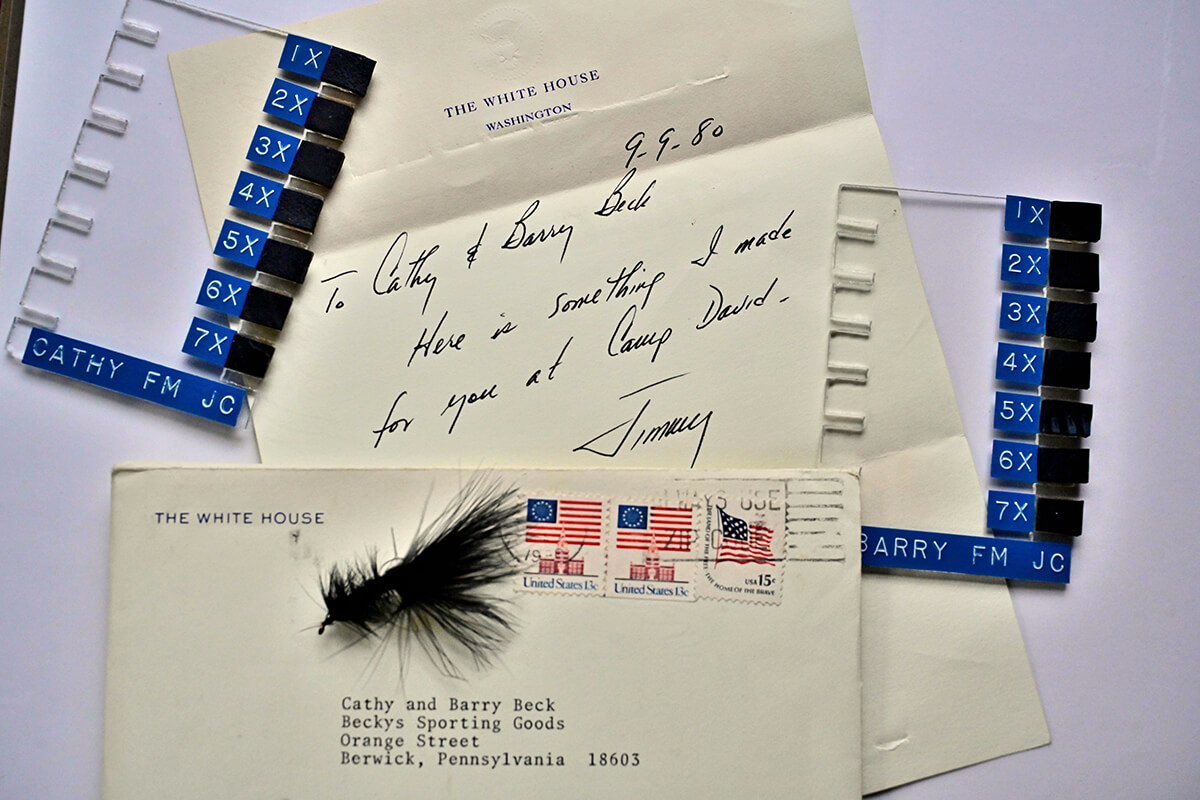 1X
2X
3X
4X
5X
6X
7X
CATHY FM JC
THE WHITE HOUSE
WASHINGTON
9-9-80
To Cathy & Barry Beck
Here is something I made
for you at Camp David-
Jimmy
1X
2X
3X
4X
5X
6X
7X
BARRY FM JC
THE WHITE HOUSE
United States 13c
United States 13c
THE LAND OF THE FREE
THE HOME OF THE BRAVE
USA 15c
USE
Cathy and Barry Beck
Beckys Sporting Goods
Orange Street
Berwick, Pennsylvania 18603